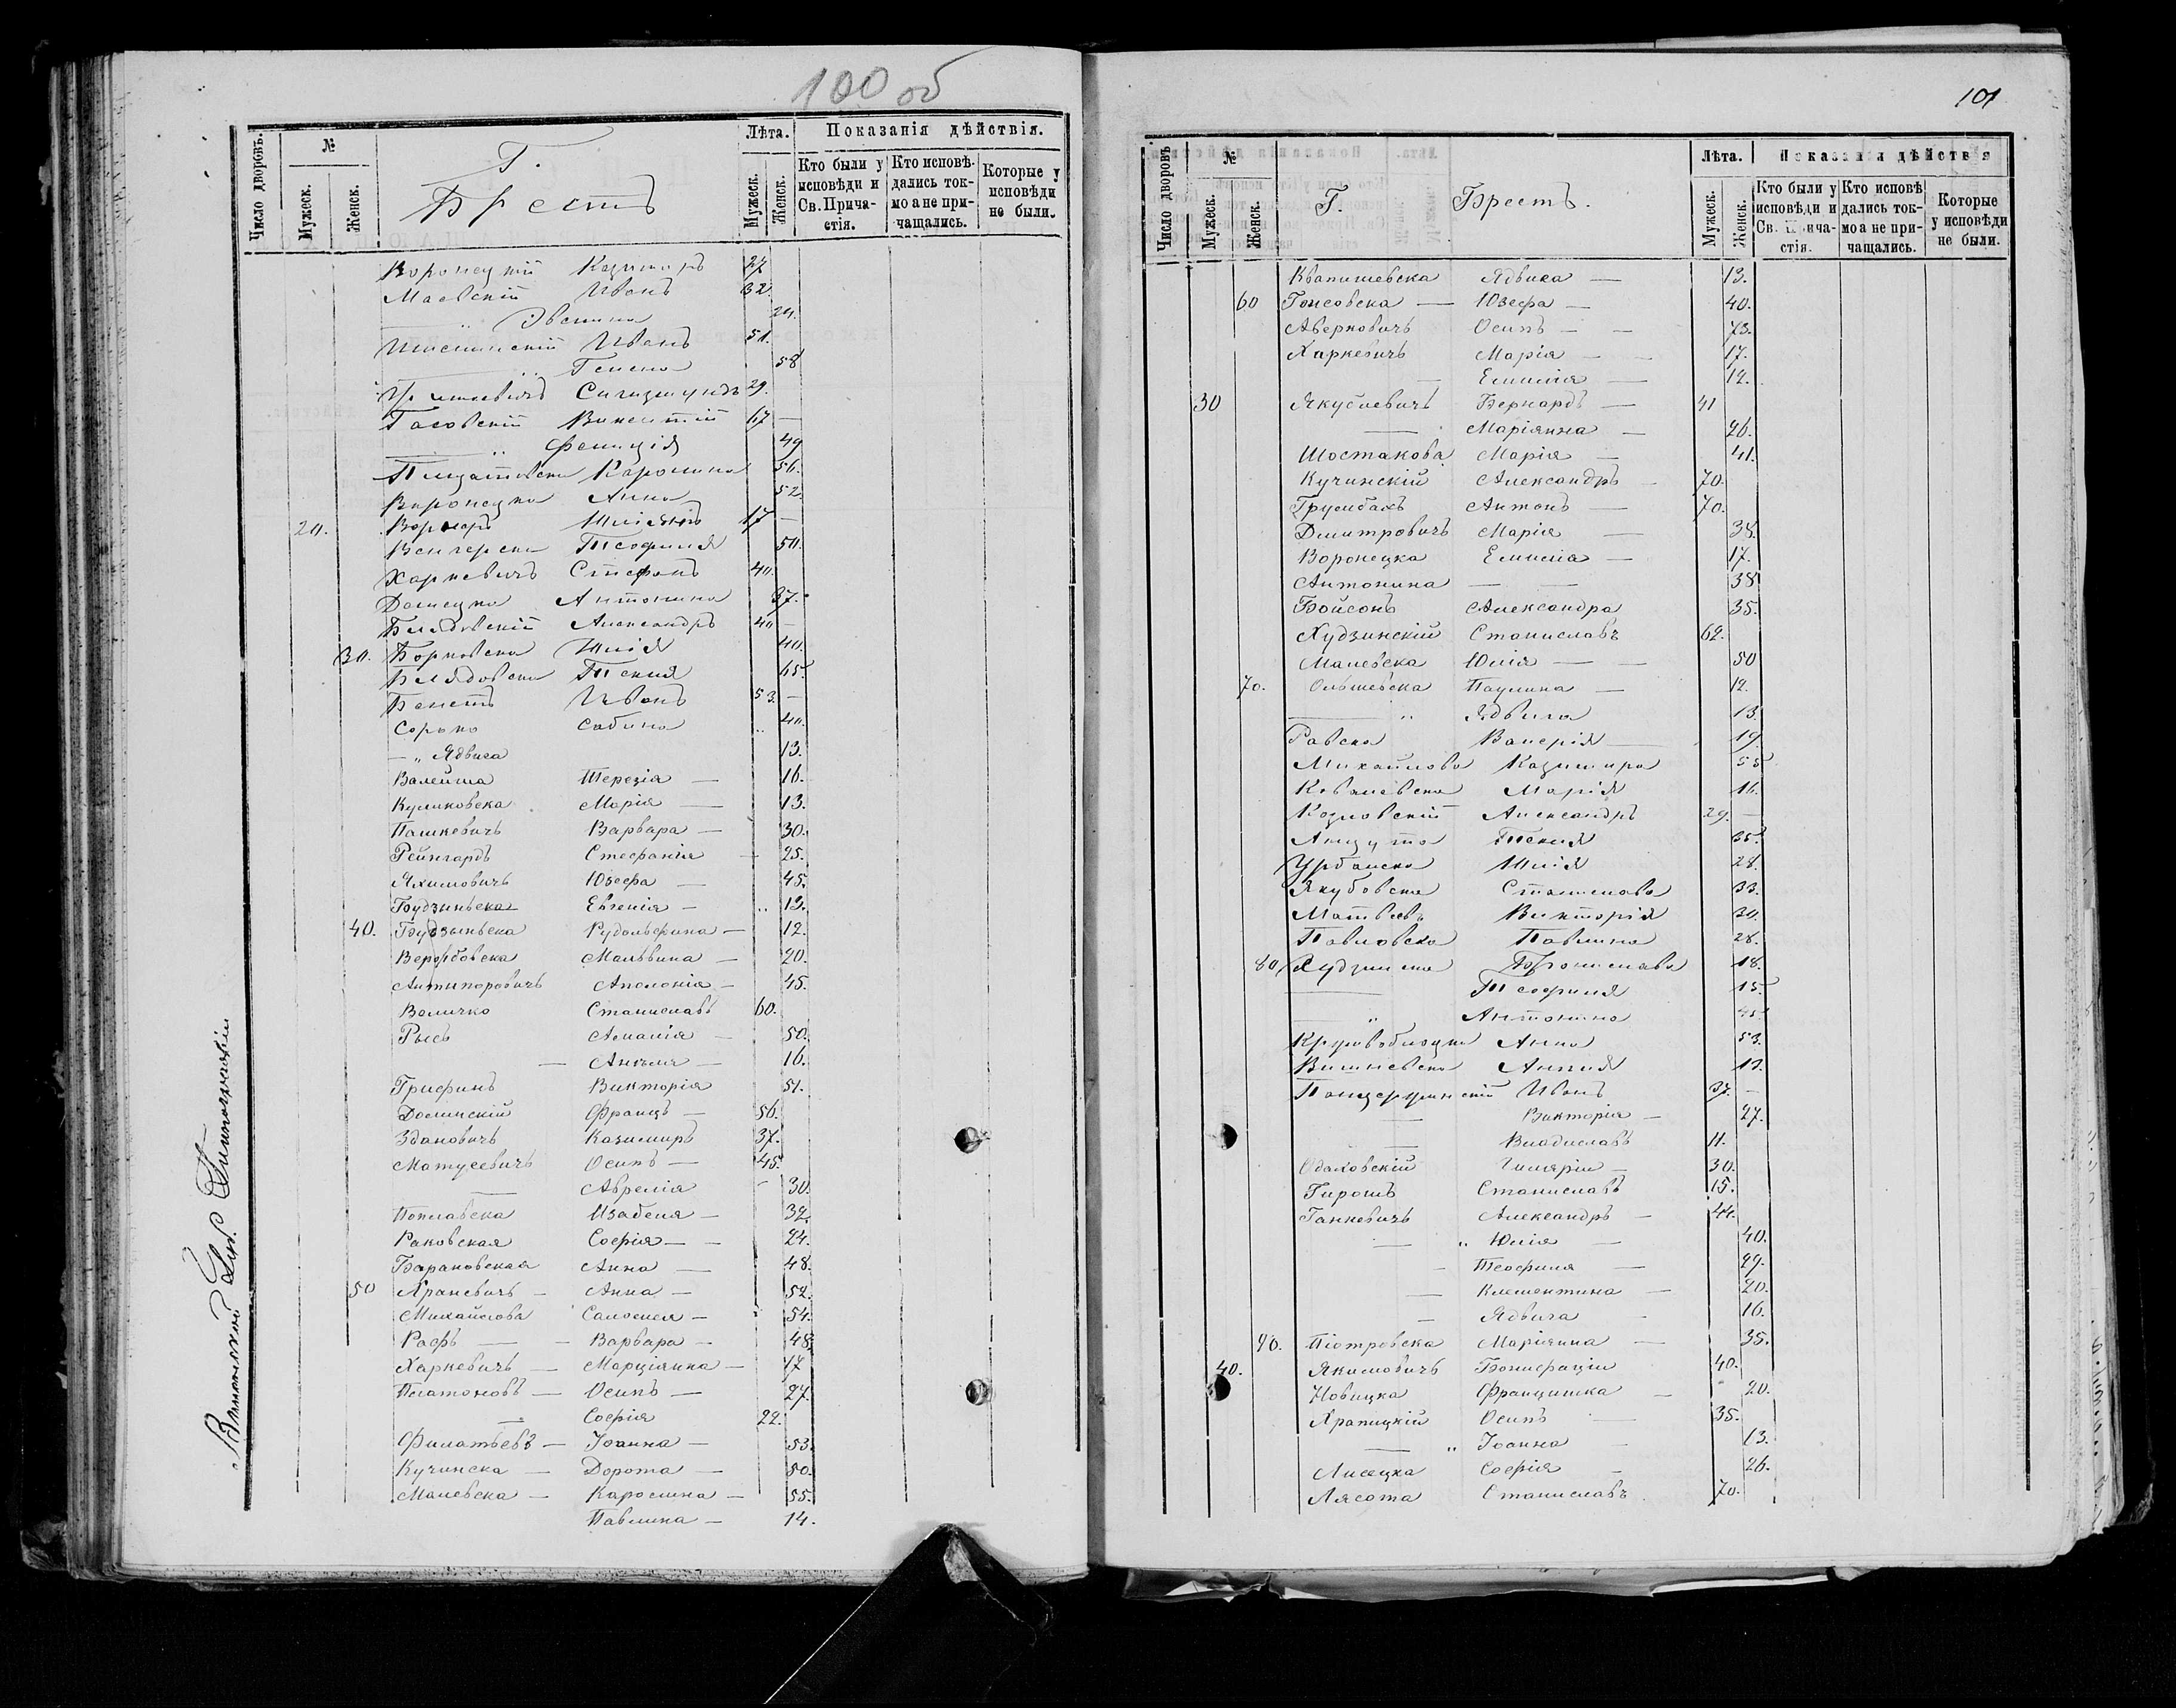 100 об
Число дворовъ.
№
Мужеск.
Женск.
Г.
Брестъ
Лѣта.
Мужеск.
Женск.
Показанія дѣйствія.
Кто были у исповѣди и Св. Прича-стія.
Кто исповѣ-дались ток-мо а не при-чащались.
Которые у исповѣди не были.
Воронецкій Казимиръ 27
Маевскій Иванъ 32.
— „ Эвелина 24.
Иванъ 51.
— „ Гелена 58
Сигизмундъ 29.
Гасовскій Викентій 17 —
— „ Фелиція 49
Каролина 56.
Воронецка Анна 52.
20. Вернеръ 17 —
Венгерска Теофиля 50.
Харкевичъ Стефанъ 40.
Донецка Антонина 37.
Блядовскій Александръ 40 —
30. Борковска Юлія 40.
Блядовска Текля 65.
Банетъ Иванъ 53. —
Сорока Сабина „ 40.
— „ Ядвига 13.
Валейша Терезія — 16.
Куликовска Марія — 13.
Пашкевичъ Варвара — 30.
Рейнгардъ Стефанія — 25.
Яхимовичъ Юзефа — 45.
Будзиньска Евгенія — „ 13.
40. Будзыньска Рудольфина — 12.
Вербовска Мальвина — 20.
Антипоровичъ Аполонія — 45.
Величко Станиславъ 60.
Рысь Амалія — 50.
— Анеля — 16.
Грифинъ Викторія 51.
Долинскій Францъ — 56.
Здановичъ Казимиръ 37.
Матусевичъ Осипъ — 45.
— Аврелія — 30.
Поплавска Изабеля — 32.
Раковская Софія — — 24.
Барановская Анна — 48.
50 Храневичъ — Анна — 52.
Михайлова Саломея — 54.
Рафъ — — Варвара — 48.
Харкевичъ — Марціянна — 17
Платоновъ — Осипъ — 27.
— Софія 22.
Филатьевъ — Іоанна — 53.
Кучинска — Дорота — 50.
Малевска — Каролина — 55.
Павлина — 14.
101
Число дворовъ
№
Мужеск.
Женск.
Г. Брестъ.
Лѣта.
Мужеск.
Женск.
Показанія дѣйствія
Кто были у исповѣди и Св. Прича-стія.
Кто исповѣ дались ток-мо а не при-чащались.
Которые у исповѣди не были.
Квапишевска Ядвига — 13.
60 Гонсовска — Юзефа — 40.
Аверковичъ Осипъ — — 73.
Харкевичъ Марія — — 17.
— Емилія — 12.
30 Якубсевичъ Бернардъ — 41
— Маріянна — 26.
Шостакова Марія — 41.
Кучинскій Александръ — 70.
Грумбахъ Антонъ — 70.
Дмитровичъ Марія — 38.
Воронецка Емилія — 17.
Антонина — — 38
Бойсонъ Александра 35.
Худзинскій Станиславъ 62.
Малевска Юлія — — 50
70. Ольшевска Паулина — 12.
— „ Ядвига 13.
Равска Валерія — 19.
Михайлова Казимира 55
Ковалевска Марія 16.
Козловскій Александръ 29. —
Анцута Текля 35.
Урбанска Юлія 28.
Якубовска Станислава 33.
Матвеевъ Викторія 30.
Павловска Павлина 28.
80 Худзинска Бронислава 18.
— Теофиля 15.
— „ Антонина 45
Анна 53.
Вишневска Анеля 13.
Иванъ 37. —
— Викторія — 27.
— Владиславъ 11.
Одаховскій Гиляріи — 30.
Гирошъ Станиславъ 15.
Ганкевичъ Александръ — 44.
— „ Юлія — 40.
— Теофиля — 29.
— Клементина — 20.
— Ядвига — 16.
90. Піотровска Маріянна — 35.
40. Якимовичъ Бонифаціи 40.
Новицка Францишка — 20.
Храпицкій Осипъ — 35.
— „ Іоанна — 13.
Лисецка Софія — 26.
Лясота Станиславъ 70.